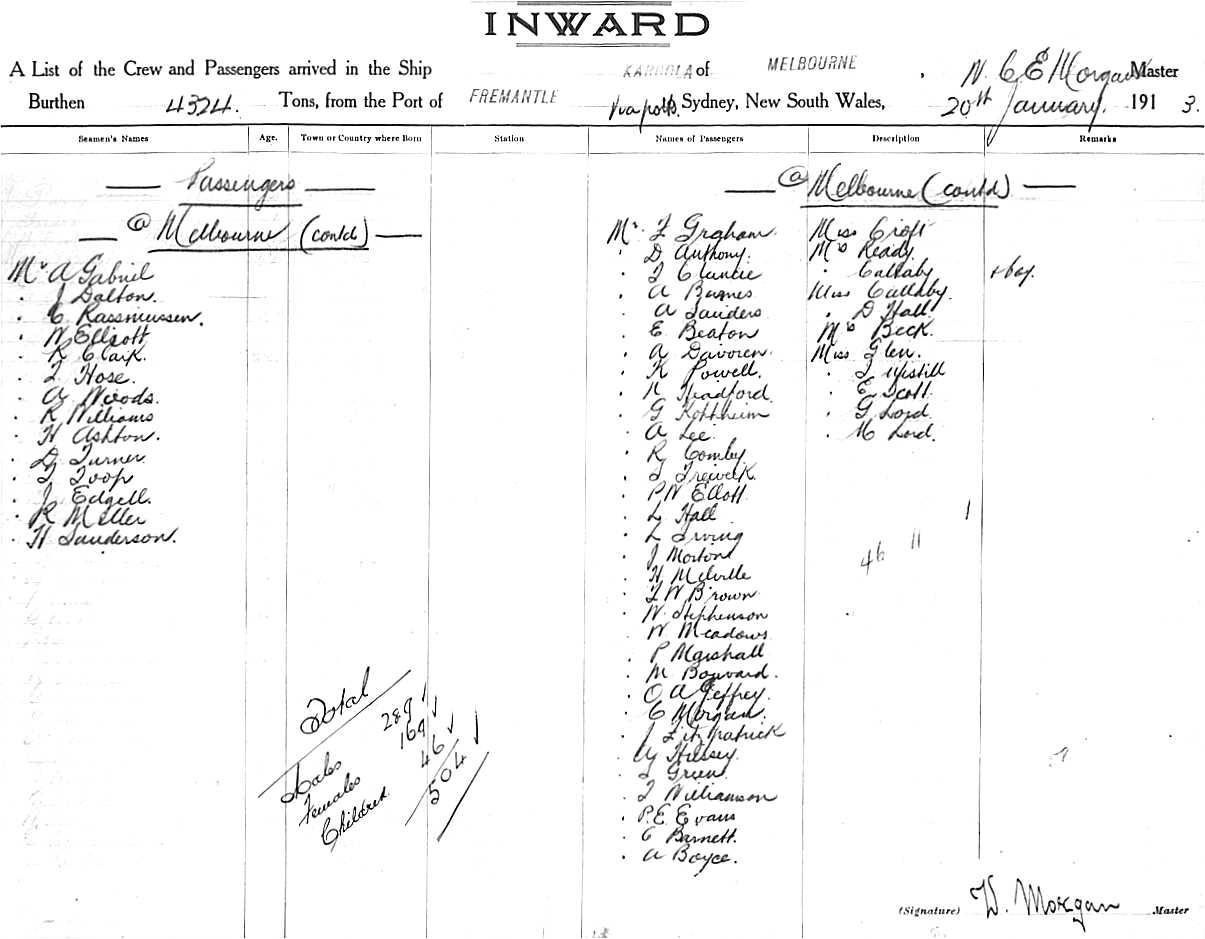 INWARD
A List of the Crew and Passengers arrived in the Ship KAROOLA of MELBOURNE, W. C E Morgan Master
Burthen 4324. Tons, from the Port of FREMANTLE Via ports. Sydney, New South Wales, 20th January. 1913.
Seamen's Names Age. Town or Country where Born Station Names of Passengers Description Remarks
Passengers
@ Melbourne (contd)
Mr A Gabriel
. J Dalton.
. C. Rassmussen.
. W Ellsott
. R Clark.
. Hose.
. A Woods.
. R Williams
. H Ashton.
. D Turner
. T Toop
. J Edgell.
. R Miller
. H Sanderson.
Total
Males 289
Females 169
Children 46
504
@ Melbourne (contd)
Mr F Graham
. D Anthony.
. Clancie
. A Barnes
. A Sanders
. E Beaton
. A Davoren
. K Powell.
. Headford
. G Kottheim
. A Lee
. R Comley
. Treweek
. P W Ellott
. L Hall
. L Irving
. J Morton
. H Melville
. F W Brown
. W Stephenson
. W Meadows
. P Marshall
. M Bouvard.
. O A Jeffrey.
. C Morgan.
. J Fitzpatrick
. Hussey
. Green
. Williamson
. P. E. Evans
. C Barnett.
. A Boyce.
Miss Croft
Mrs Ready.
. Callaby + boy.
Miss Callaby.
. D Hall
Mrs Beck.
Miss Glen.
. Wistill
. E Scott
. G Lord
. M Lord.
1
46 11
(Signature) W. Morgan Master